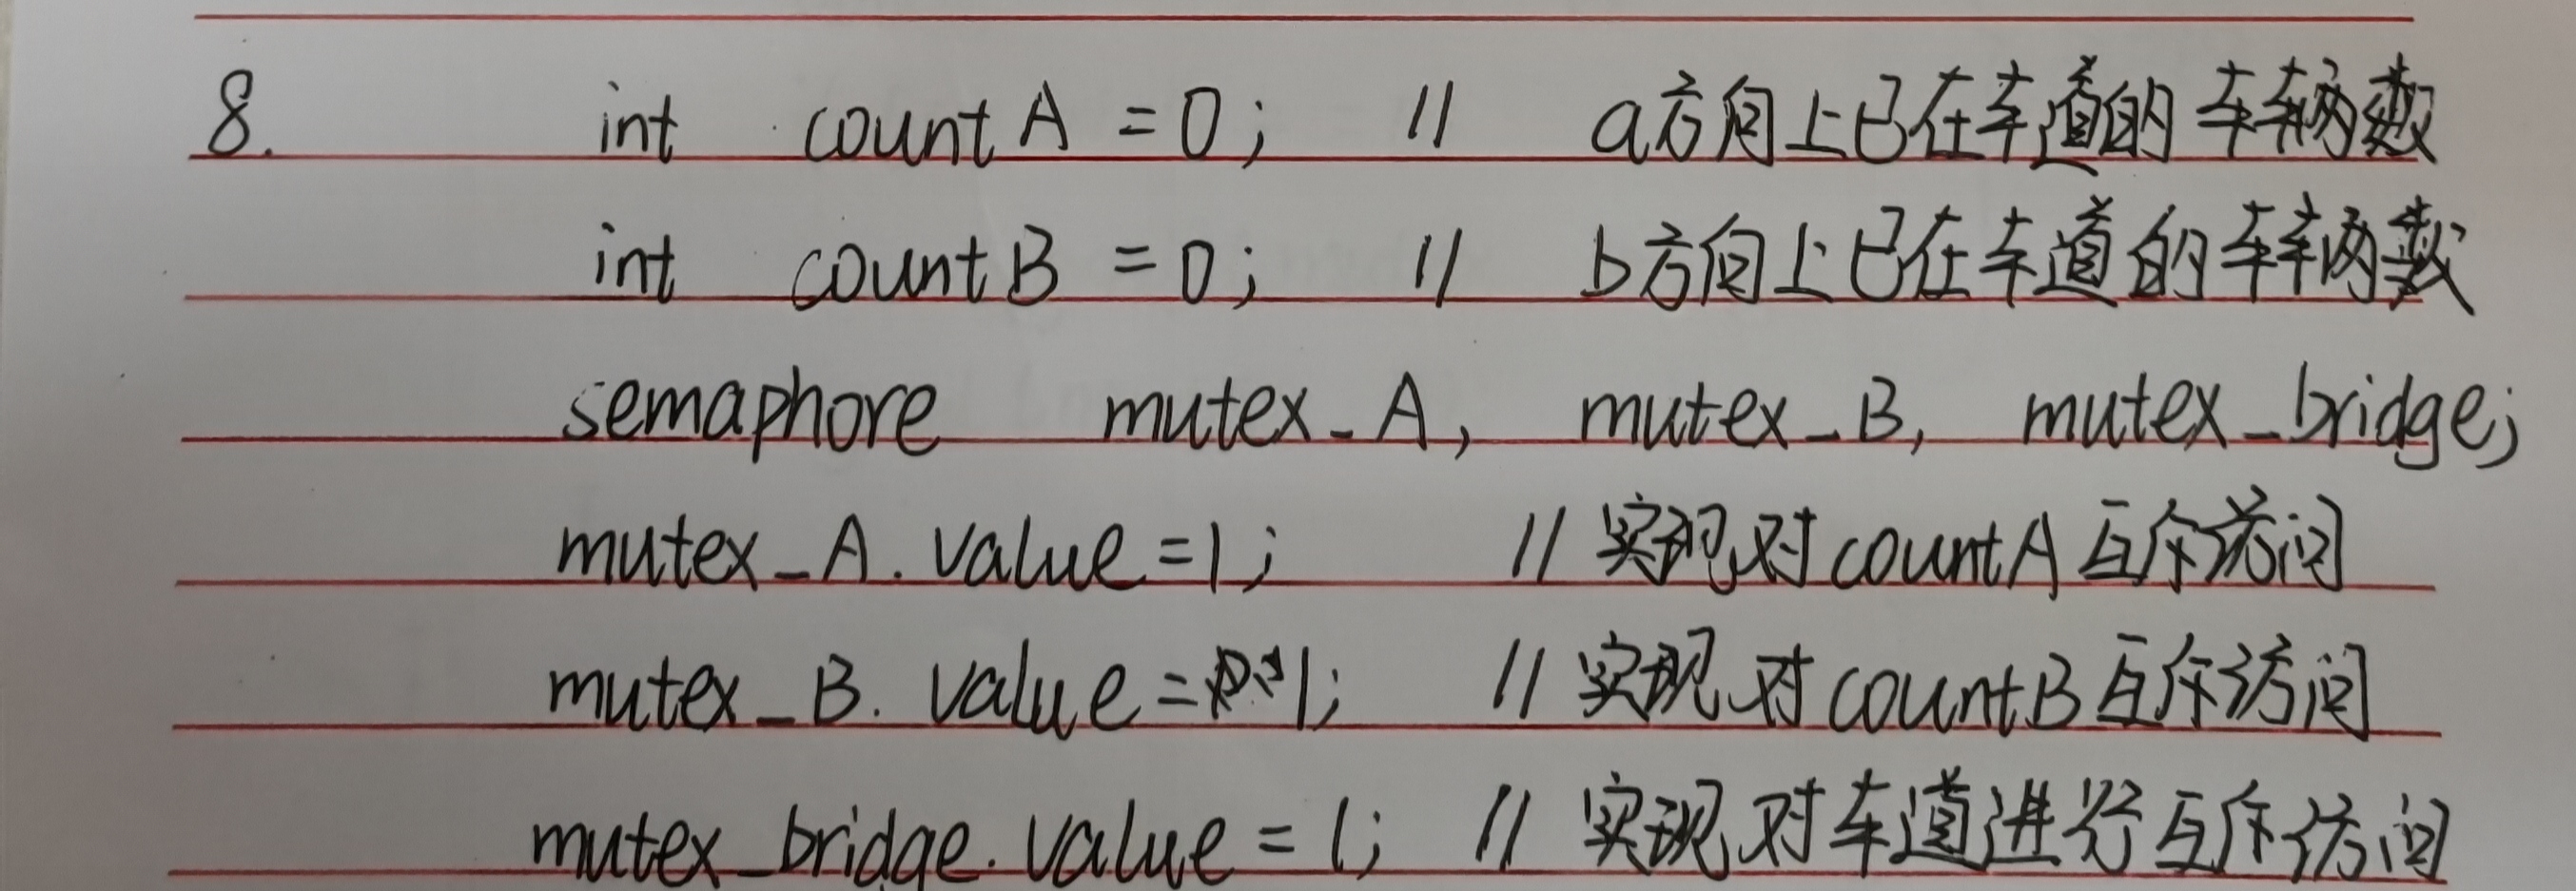 8. int countA = 0; // a方向上已在车道的车辆数
int countB = 0; // b方向上已在车道的车辆数
semaphore mutex_A, mutex_B, mutex_bridge;
mutex_A.value=1; // 实现对countA互斥访问
mutex_B.value=1; // 实现对countB互斥访问
mutex_bridge.value = 1; // 实现对车道进行互斥访问